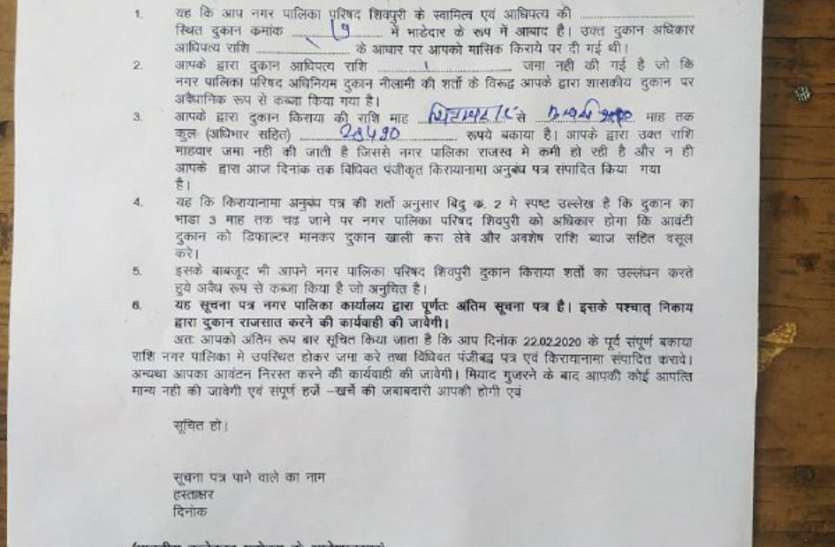 1. यह कि आप नगर पालिका परिषद शिवपुरी के स्वामित्व एवं आधिपत्य की ........................
स्थित दुकान कमांक ............ में भाडेदार के रूप में आबाद है। उक्त दुकान अधिकार
आधिपत्य राशि .................... के आधार पर आपको मासिक किराये पर दी गई थी।
2. आपके द्वारा दुकान आधिपत्य राशि .................... जमा नही की गई है जो कि
नगर पालिका परिषद अधिनियम दुकान नीलामी की शर्तो के विरूद्व आपके द्वारा शासकीय दुकान पर
अवैधानिक रूप से कब्जा किया गया है।
3. आपके द्वारा दुकान किराया की राशि माह से माह तक
कुल (अधिभार सहित) 28490 रूपये बकाया है। आपके द्वारा उक्त राशि
माहवार जमा नही की जाती है जिससे नगर पालिका राजस्व मे कमी हो रही है और न ही
आपके द्वारा आज दिनांक तक विधिवत पंजीकृत किरायानामा अनुबंध पत्र संपादित किया गया
है।
4. यह कि किरायानामा अनुबंध पत्र की शर्तो अनुसार बिदु क. 2 मे स्पष्ट उल्लेख है कि दुकान का
भाडा 3 माह तक चढ जाने पर नगर पालिका परिषद शिवपुरी को अधिकार होगा कि आवंटी
दुकान को डिफाल्टर मानकर दुकान खाली करा लेवे और अवशेष राशि ब्याज सहित वसूल
करे।
5. इसके बाबजूद भी आपने नगर पालिका परिषद शिवपुरी दुकान किराया शर्तो का उल्लंघन करते
हुये अवैध रूप से कब्जा किया है जो अनुचित है।
6. यह सूचना पत्र नगर पालिका कार्यालय द्वारा पूर्णतः अंतिम सूचना पत्र है। इसके पश्चात् निकाय
द्वारा दुकान राजसात करने की कार्यवाही की जावेगी।
अतः आपको अंतिम रूप बार सूचित किया जाता है कि आप दिनांक 22.02.2020 के पूर्व संपूर्ण बकाया
राशि नगर पालिका मे उपस्थित होकर जमा करे तथा विधिवत पंजीबद्व पत्र एवं किरायानामा संपादित करावे।
अन्यथा आपका आवंटन निरस्त करने की कार्यवाही की जावेगी। मियाद गुजरने के बाद आपकी कोई आपत्ति
मान्य नही की जावेगी एवं संपूर्ण हर्जे –खर्चे की जबाबदारी आपकी होगी एवं
सूचित हो।
सूचना पत्र पाने वाले का नाम
हस्ताक्षर
दिनांक